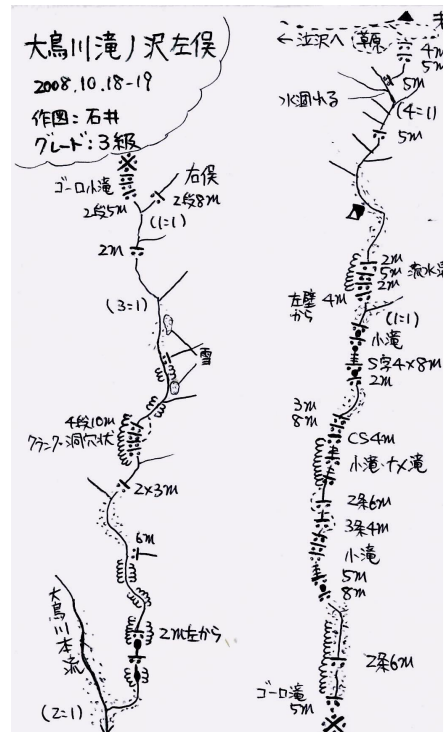 大鳥川滝ノ沢左俣
2008.10.18-19
作図:石井
グレード:3級
ゴーロ小滝
2段5m
右俣
2段8m
(1=1)
2m
(3=1)
雪
4段10m
クランク・洞穴状
2×3m
6m
2m左から
大鳥川本流
(2=1)
←泣沢へ
草原
4m
5m
5m
水涸れる
(4=1)
5m
2m
5m
2m
左壁から
4m
(1=1)
小滝
S字4×8m
2m
3m
8m
CS4m
小滝・ナメ滝
2条6m
3条4m
小滝
5m
8m
2条6m
ゴーロ滝
5m